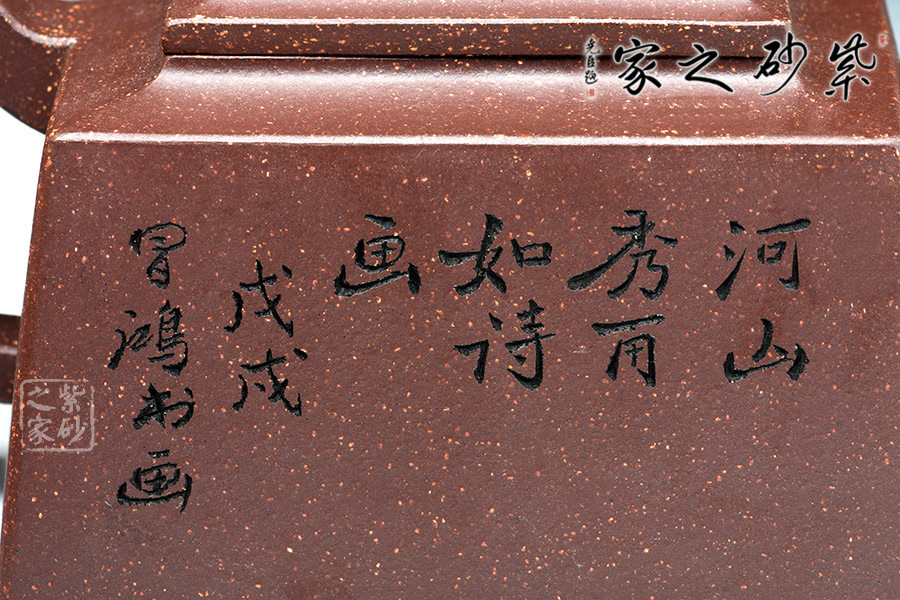 紫砂之家
尧臣题
河山
秀丽
如诗
画
戊戌
冒鸿书画
紫砂
之家